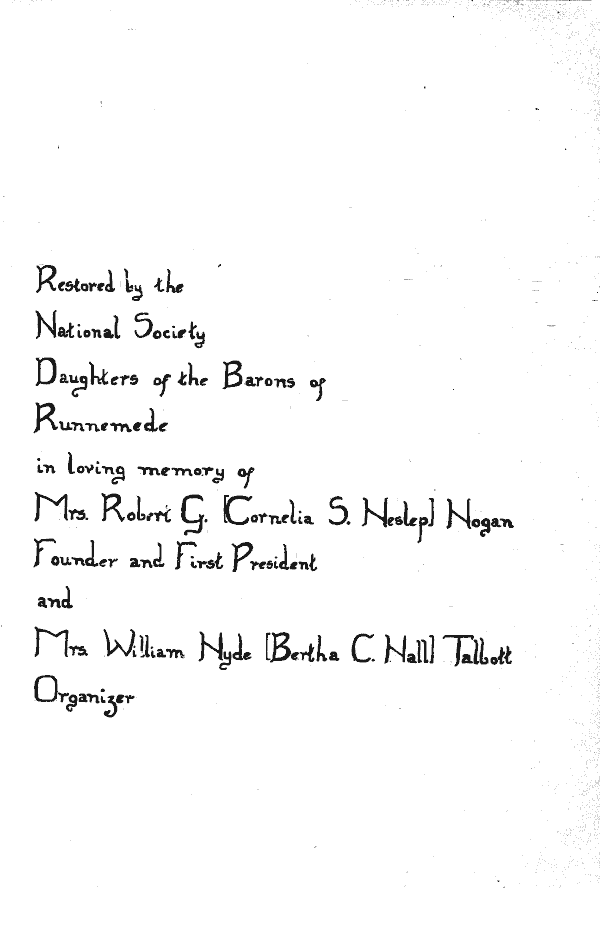 Restored by the
National Society
Daughters of the Barons of
Runnemede
in loving memory of
Mrs. Robert G. [Cornelia S. Heslep] Hogan
Founder and First President
and
Mrs. William Hyde [Bertha C. Hall] Talbott
Organizer